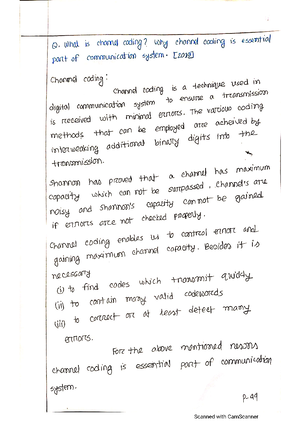 Q. What is channel coding? Why channel coding is essential
part of communication system. [2018]
Channel coding:
Channel coding is a technique used in
digital communication system to ensure a transmission
is received with minimal errors. The various coding
methods that can be employed are acheived by
interweaking additional binary digits into the
transmission.
Shannon has proved that a channel has maximum
capacity which can not be surpassed. Channels are
noisy and shannon's capacity can not be gained
if errors are not checked properly.
Channel coding enables us to control error and
gaining maximum channel capacity. Besides it is
necessary
(i) to find codes which transmit quickly
(ii) to contain many valid codewords
(iii) to correct or at least detect many
errors.
For the above mentioned reasons
channel coding is essential part of communication
system.
P-49
Scanned with CamScanner